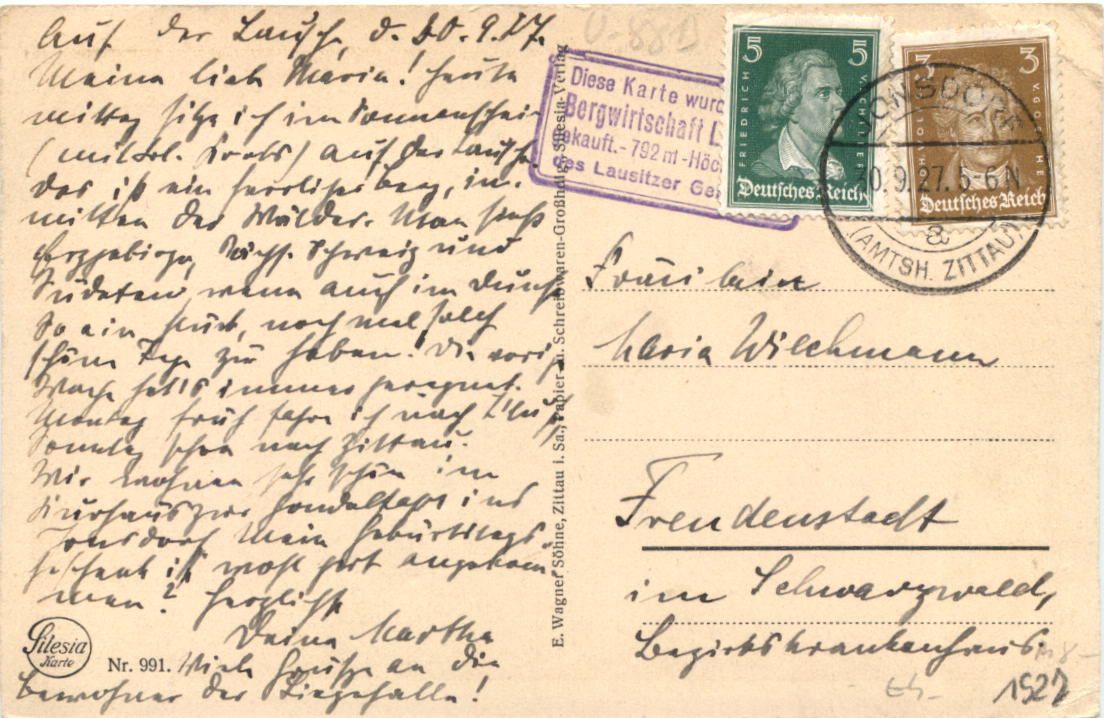 Auf der Lausche, d. 30.9.27.
Meine liebe Maria! Heute
mittag sitze ich im Sonnenschein
auf der Lausche
das ist ein herrlicher Berg, in-
mitten der Wälder. Man sieht
Erzgebirge, Sächs. Schweiz und
Sudeten, wenn auch im Dunst
So ein Glück, noch mal solch
schöne Tage zu haben! Die vorige
Woche hat's immer geregnet.
Montag früh fahre ich nach
Sonntag schon nach Zittau.
Wir wohnen sehr schön im
Kurhaus
Jonsdorf Mein Geburtstags-
geschenk ist wohl dort angekom-
men? Herzlichst
Deine Martha
Viele Grüße an die
Bewohner der Liegehalle!
Silesia
Karte
Nr. 991.
E. Wagner Söhne, Zittau i. Sa., Papier- u. Schreibwaren-Großhdlg. Silesia-Verlag
U-88D
Diese Karte wurd
Bergwirtschaft L
ekauft.-792 m-Höc
des Lausitzer Ge
5 5
FRIEDRICH V. SCHILLER
Deutsches Reich
3 3
JOH. WOL V. GOETHE
Deutsches Reich
JONSDORF
30.9.27. 5-6 N
a
(AMTSH. ZITTAU)
Fräulein
Maria Wilchmann
Freudenstadt
im Schwarzwald,
Bezirkskrankenhaus.
1927